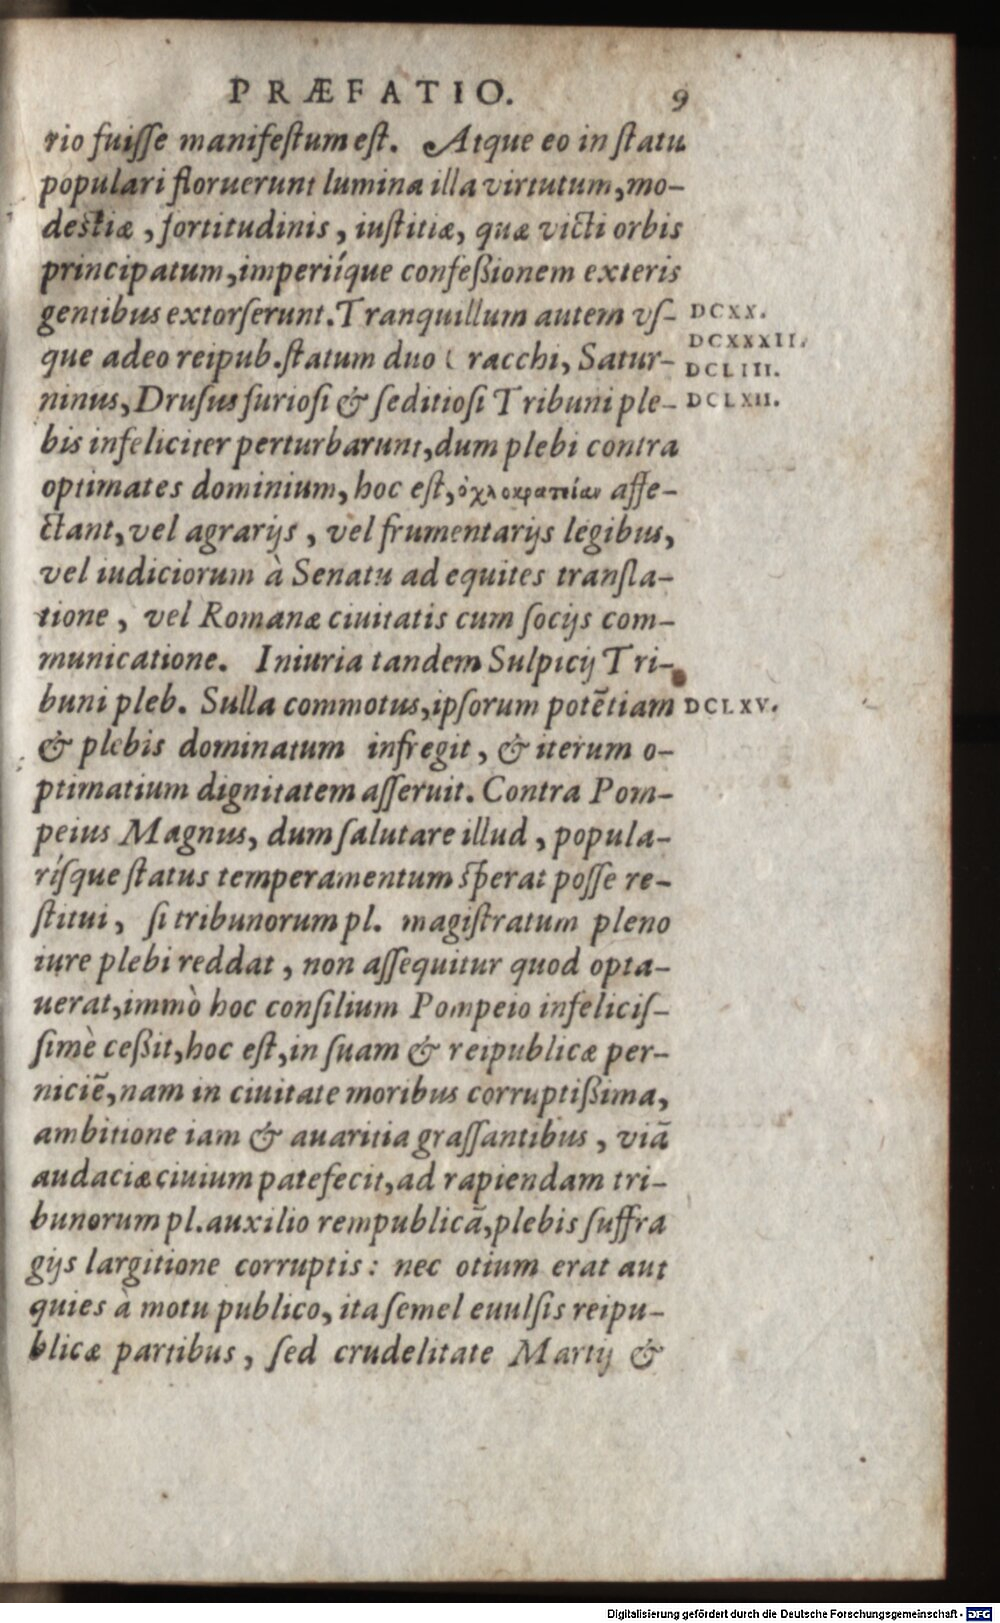 PRÆFATIO. 9
rio fuiſſe manifeſtum eſt. Atque eo in ſtatu
populari floruerunt lumina illa virtutum, mo-
deſtiæ, fortitudinis, iuſtitiæ, quæ victi orbis
principatum, imperiíque confeßionem exteris
gentibus extorſerunt. Tranquillum autem vſ- DCXX.
DCXXXII.
que adeo reipub. ſtatum duo racchi, Satur- DCLIII.
ninus, Druſus furioſi & ſeditioſi Tribuni ple- DCLXII.
bis infeliciter perturbarunt, dum plebi contra
optimates dominium, hoc eſt, ὀχλοκρατείαν affe-
ctant, vel agrarijs, vel frumentarijs legibus,
vel iudiciorum à Senatu ad equites transla-
tione, vel Romanæ ciuitatis cum ſocijs com-
municatione. Iniuria tandem Sulpicij Tri-
buni pleb. Sulla commotus, ipſorum potētiam DCLXV.
& plebis dominatum infregit, & iterum o-
ptimatium dignitatem aſſeruit. Contra Pom-
peius Magnus, dum ſalutare illud, popula-
ríſque ſtatus temperamentum ſperat poſſe re-
ſtitui, ſi tribunorum pl. magiſtratum pleno
iure plebi reddat, non aſſequitur quod opta-
uerat, immò hoc conſilium Pompeio infeliciſ-
ſimè ceßit, hoc eſt, in ſuam & reipublicæ per-
niciē, nam in ciuitate moribus corruptißima,
ambitione iam & auaritia graſſantibus, viā
audaciæ ciuium patefecit, ad rapiendam tri-
bunorum pl. auxilio rempublicā, plebis ſuffra
gijs largitione corruptis: nec otium erat aut
quies à motu publico, ita ſemel euulſis reipu-
blicæ partibus, ſed crudelitate Martij &
Digitalisierung gefördert durch die Deutsche Forschungsgemeinschaft - DFG